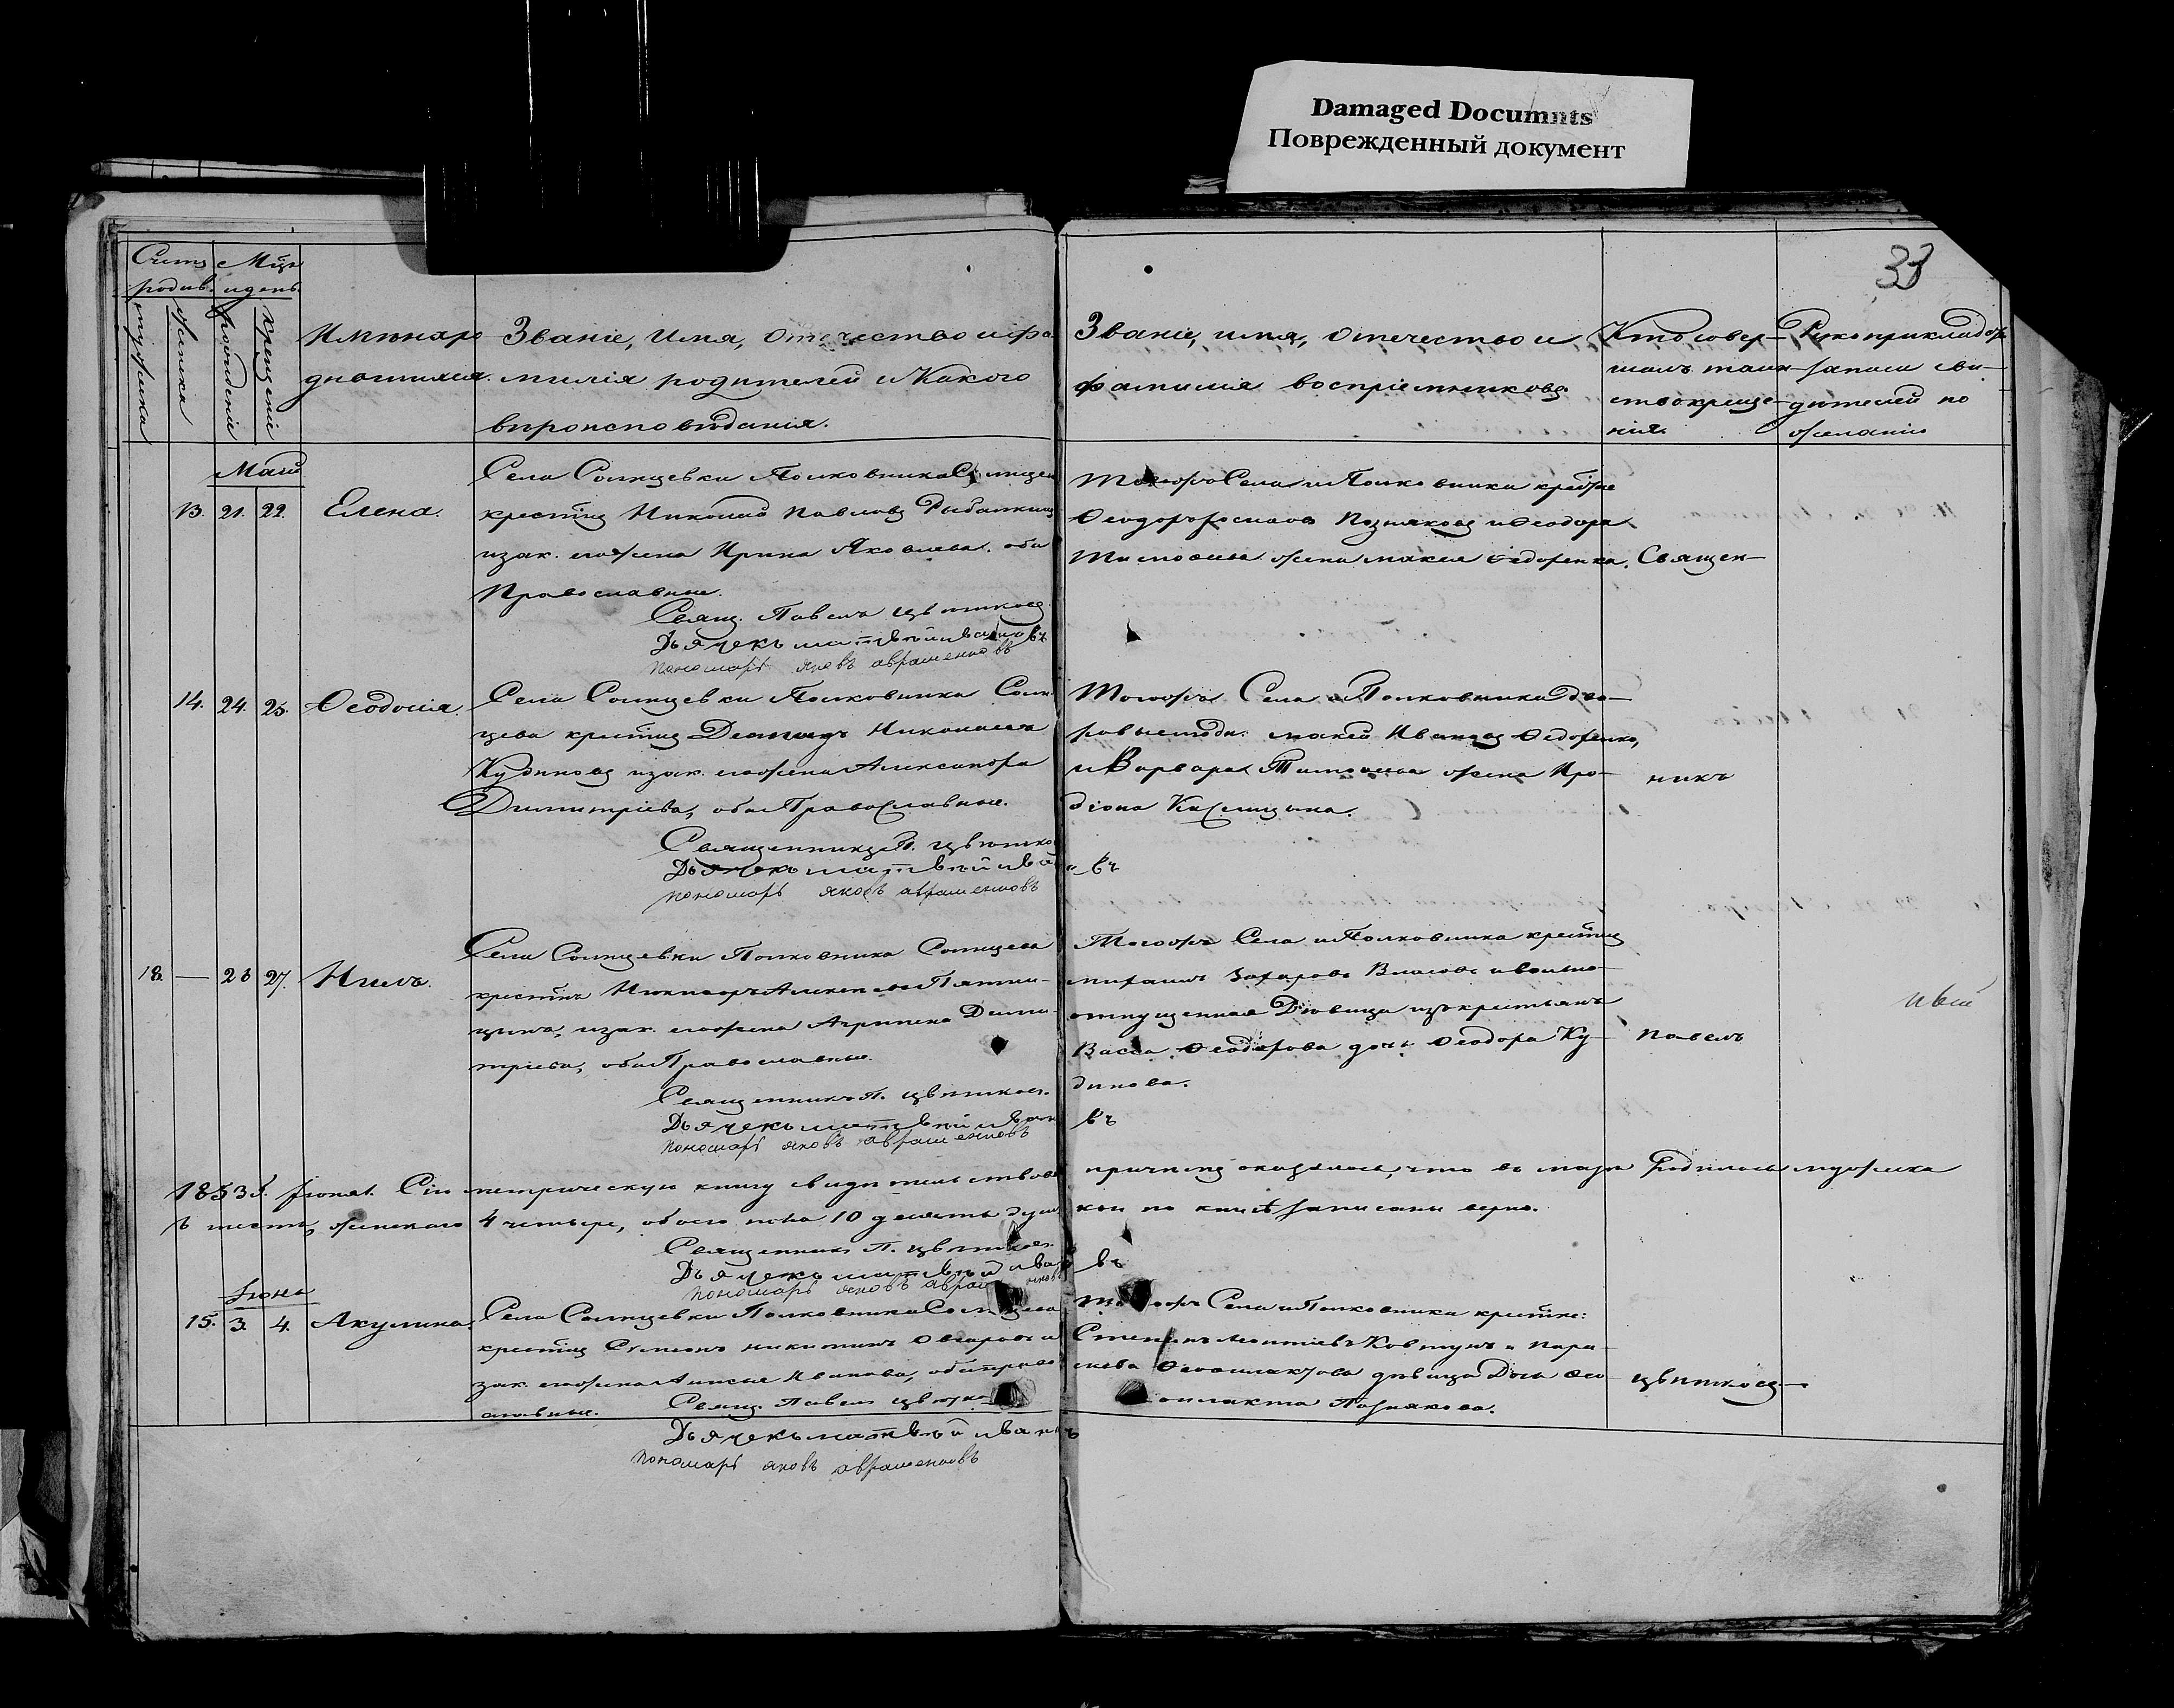 Damaged Documnts
Поврежденный документ
33
Счетъ
родив.
Мцъ
и день.
мужеска
женска
рожденіе
крещеніе
Имѣна ро
дившихся.
Званіе, Имя, Отечество и фа
милія родителей и Какого
вѣроисповѣданія.
Званіе, имя, отечество и
фамилія воспріемниковъ
Кто совер-
шалъ таин-
ство креще-
нія.
Рукоприкладст.
записи сви-
дѣтелей по
желанію
Маій
13. 21. 22. Елена.
Села Солнцевки Полковника Солнцева
крестнц Николай Павловъ Рыбалкинъ
и зак. его жена Ирина Яковлева. оба
Православные.
Свящ. Павелъ Цвѣтковъ
Дьячекъ матвѣй ивановъ
пономарь яковъ авраменковъ
Тогожъ Села и Полковника
Позняковъ и Феодора
жена макея Федоренка.
Священ-
14. 24. 25. Феодосія.
Села Солнцевки Полковника Солн-
цева крестнц Демидъ Николаевъ
Кудиновъ и зак. его жена Александра
Димитріева, оба Православные.
Священникъ П. Цвѣтко
Дьячекъ матвѣй ива
въ
пономарь яковъ авраменковъ
Тогожъ Села и Полковника дво-
ровые люди: макей Ивановъ Федоренко,
и Варвара Тимоѳеева жена Иро-
діона
никъ
18. — 26 27. Нилъ.
Села Солнцевки Полковника Солнцева
крестнъ Никифоръ Алексѣевъ Пятни-
цынъ, и зак. его жена Агрипена Дими-
тріева, оба Православные.
Священникъ П. Цвѣтковъ.
Дьячекъ матвѣй иван
въ
пономарь яковъ авраменковъ
Тогожъ Села и Полковника крестнц
Захаровъ Власовъ и вольно-
отпущенная Дѣвица изъ крестьянъ
Васса Феодорова дочь Феодора Ку-
динова.
Павелъ
1853 г. Іюня 1. Сію метрическую книгу свидѣтельствовав
причтъ оказалось, что въ маѣ родилось мужеска
ъ шесть, женскаго 4 четыре, обоего пола 10 десять душ
кои по книгѣ записаны верно.
Священникъ П. Цвѣтковъ.
Дьячекъ матвѣй ива
въ
пономарь яковъ
Іюнь
15. 3. 4. Акулина.
Села Солнцевки Полковника Солнцева
крестнц Семіонъ никитинъ Овчаровъ и
зак. его жена Анисья Иванова, оба право
славные.
Свящ. Павелъ Цвѣтко
Дьячекъ матвѣй иванъ
пономарь яковъ авраменковъ
Тогожъ Села и Полковника крестне:
Степанъ Леонтіевъ Ковтунъ и Пара-
скева Феофилактова дѣвица Дочь Фео-
филакта Познякова.
Цвѣтковъ